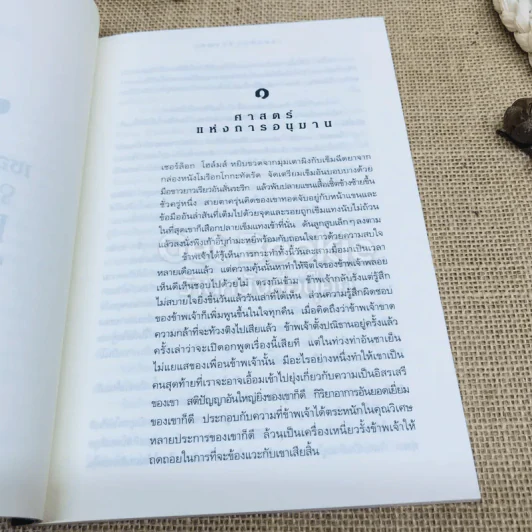 ๑
ศาสตร์
แห่งการอนุมาน
เชอร์ล็อก โฮล์มส์ หยิบขวดจากมุมเตาผิงกับเข็มฉีดยาจาก
กล่องหนังโมร็อกโกกะทัดรัด จัดเตรียมเข็มอันบอบบางด้วย
มือขาวยาวเรียวอันสั่นระริก แล้วพับปลายแขนเสื้อเชิ้ตข้างซ้ายขึ้น
ชั่วครู่หนึ่ง สายตาครุ่นคิดของเขาทอดจับอยู่กับหน้าแขนและ
ข้อมืออันล่ำสันที่เต็มไปด้วยจุดและรอยถูกเข็มแทงนับไม่ถ้วน
ในที่สุดเขาก็เสือกปลายเข็มแทงเข้าที่นั้น ดันลูกสูบเล็กๆ ลงตาม
แล้วลงนั่งพิงเก้าอี้บุกำมะหยี่พร้อมกับถอนใจยาวด้วยความสบใจ
ข้าพเจ้าได้รู้เห็นการกระทำดังนี้วันละสามมื้อมาเป็นเวลา
หลายเดือนแล้ว แต่ความคุ้นนั้นหาทำให้จิตใจของข้าพเจ้าพลอย
เห็นดีเห็นชอบไปด้วยไม่ ตรงกันข้าม ข้าพเจ้ากลับรังแต่รู้สึก
ไม่สบายใจยิ่งขึ้นวันแล้ววันเล่าที่ได้เห็น ส่วนความรู้สึกผิดชอบ
ของข้าพเจ้าก็เพิ่มพูนขึ้นในใจทุกคืน เมื่อคิดถึงว่าข้าพเจ้าขาด
ความกล้าที่จะท้วงติงไปเสียแล้ว ข้าพเจ้าตั้งปณิธานอยู่ครั้งแล้ว
ครั้งเล่าว่าจะเปิดอกพูดเรื่องนี้เสียที แต่ในท่วงท่าอันชาเย็น
ไม่แยแสของเพื่อนข้าพเจ้านั้น มีอะไรอย่างหนึ่งทำให้เขาเป็น
คนสุดท้ายที่เราจะอาจเอื้อมเข้าไปยุ่งเกี่ยวกับความเป็นอิสรเสรี
ของเขา สติปัญญาอันใหญ่ยิ่งของเขาก็ดี กิริยาอาการอันยอดเยี่ยม
ของเขาก็ดี ประกอบกับความที่ข้าพเจ้าได้ตระหนักในคุณวิเศษ
หลายประการของเขาก็ดี ล้วนเป็นเครื่องเหนี่ยวรั้งข้าพเจ้าให้
ถดถอยในการที่จะข้องแวะกับเขาเสียสิ้น